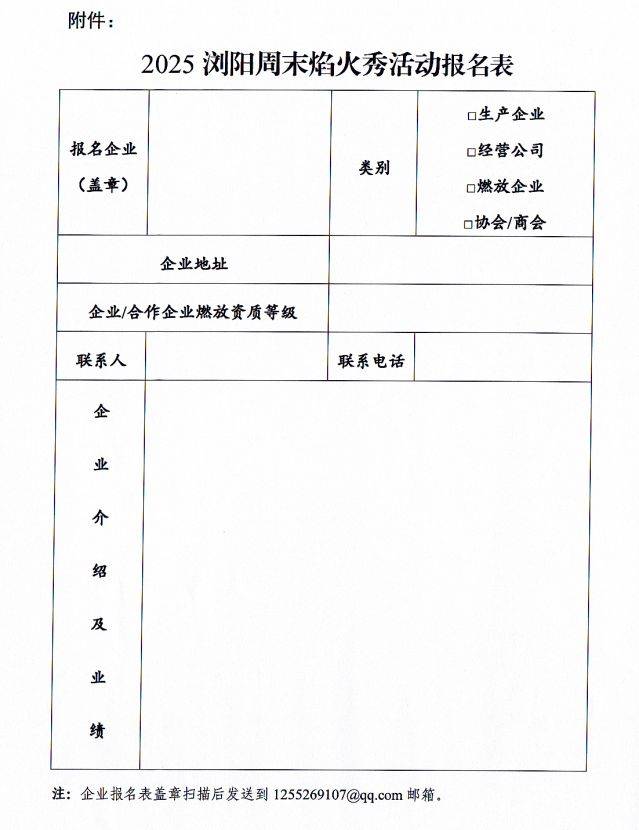 附件：
2025 浏阳周末焰火秀活动报名表
报名企业
（盖章）
类别
□生产企业
□经营公司
□燃放企业
□协会/商会
企业地址
企业/合作企业燃放资质等级
联系人
联系电话
企
业
介
绍
及
业
绩
注：企业报名表盖章扫描后发送到 1255269107@qq.com 邮箱。